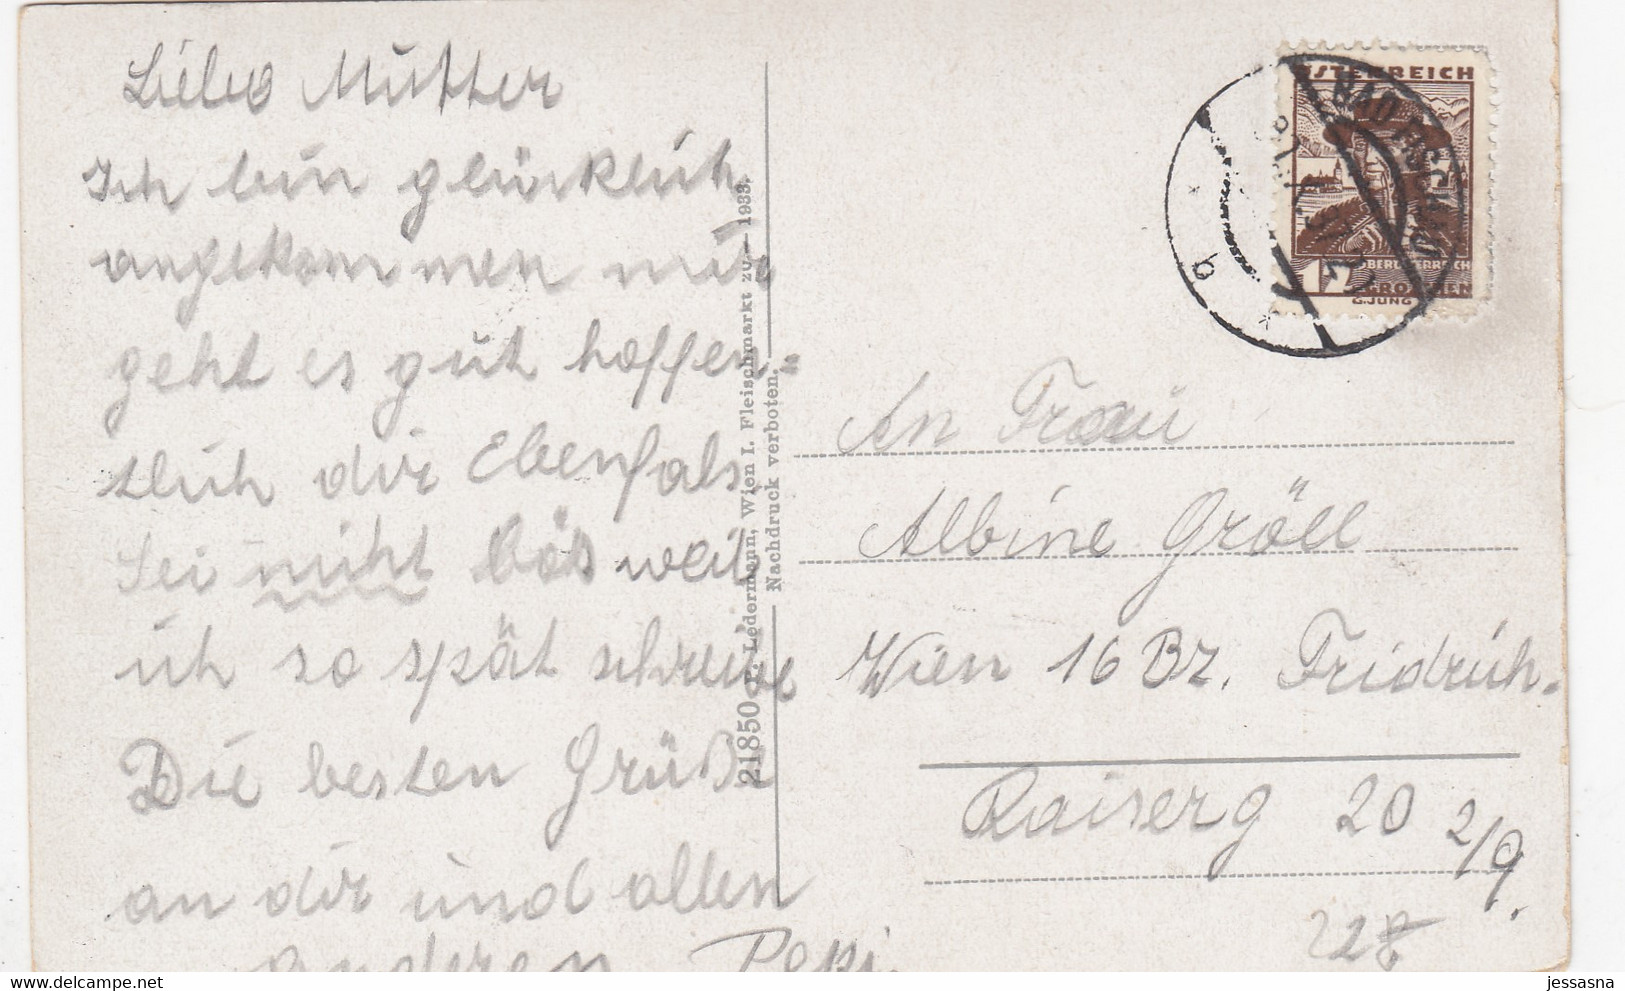 Liebe Mutter
Ich bin glücklich
angekommen mir
geht es gut hoffen=
tlich dir Ebenfals.
Sei nicht bös weil
ich so spät schreibe
Die besten Grüße
an dir und allen
anderen Pepi.
21850 P. Ledermann, Wien I. Fleischmarkt 20 — 1933.
Nachdruck verboten.
ÖSTERREICH
BAD ISCHL
OBERÖSTERREICH
GROSCHEN
G.JUNG
b
An Frau
Albine Gröll
Wien 16 Bz. Fridrich-
Kaiserg 20 2/9.
228
jessasna